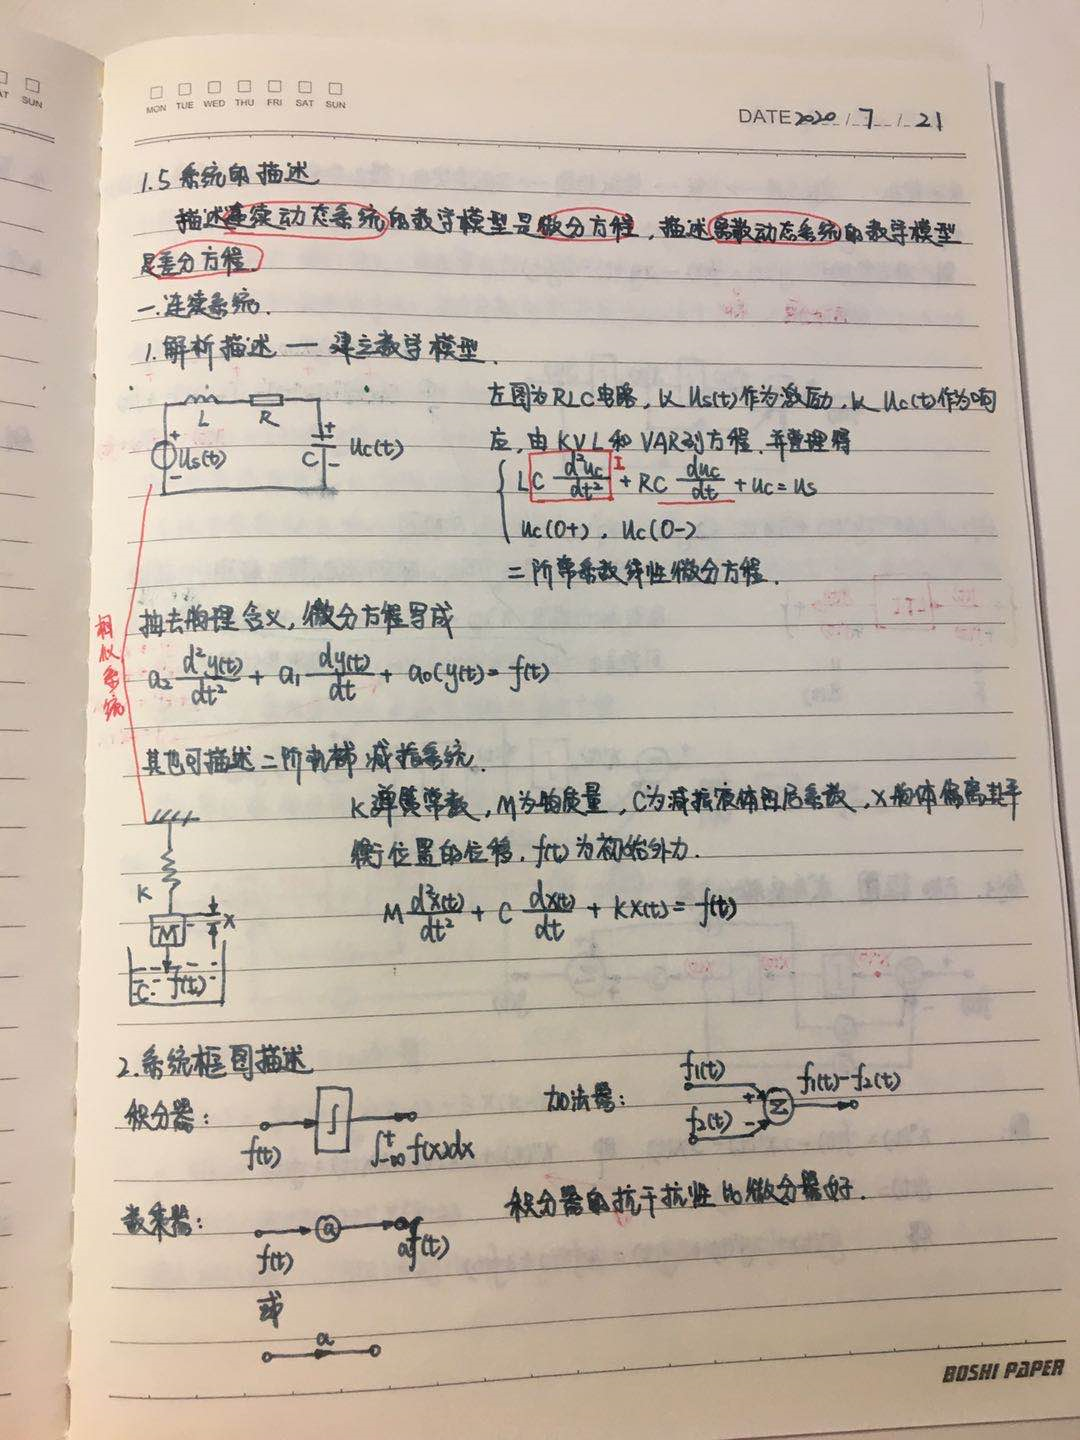 AT SUN
MON TUE WED THU FRI SAT SUN
DATE 2020 / 7 / 21
1.5 系统的描述
描述连续动态系统的数学模型是微分方程，描述离散动态系统的数学模型
是差分方程.
一.连续系统.
1.解析描述 — 建立数学模型.
L R + C - Uc(t) + Us(t) -
左图为RLC电路，以 Us(t)作为激励，以 Uc(t)作为响
应，由 KVL和 VAR列方程，并整理得
LC d²uc/dt² I + RC duc/dt + uc = us
uc(0+)，uc(0-)
二阶常系数线性微分方程.
抽去物理含义，微分方程写成
a₂ d²y(t)/dt² + a₁ dy(t)/dt + a₀(y(t) = f(t)
相似系统
其他可描述二阶 减 系统.
K弹簧常数，M为物质量，C为减振液体阻尼系数，X物体偏离其平
衡位置的位移，f(t)为初始外力.
M d²x(t)/dt² + C dx(t)/dt + Kx(t) = f(t)
K M X C f(t)
2.系统框图描述
积分器： f(t) ∫ ∫₋∞ᵗ f(x)dx
加法器： f₁(t) + f₂(t) - Σ f₁(t)-f₂(t)
数乘器： f(t) a af(t)
积分器的抗干抗性比微分器好.
或
a
BOSHI PAPER